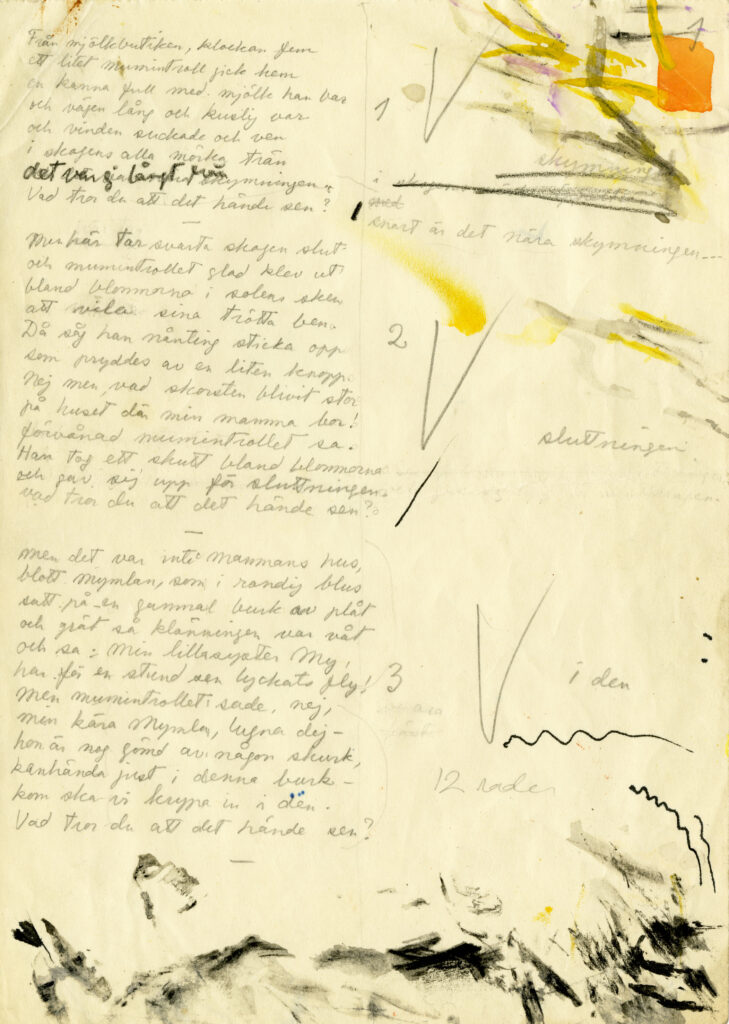 1
Från mjölkbutiken, klockan fem
ett litet mumintroll gick hem
en kanna full med mjölk han bar
och vägen lång och kuslig var
och vinden suckade och ven
i skogens alla mörka trän
det var ej långt från skymningen.
Vad tror du att det hände sen?
1
skymningen
i
med
snart är det nära skymningen---
Men här tar svarta skogen slut
och mumintrollet glad klev ut
bland blommorna i solens sken
att vila sina trötta ben.
Då såg han nånting sticka opp
som pryddes av en liten knopp.
Nej men, vad skorsten blivit stor
på huset där min mamma bor!
förvånad mumintrollet sa.
Han tog ett skutt bland blommorna
och gav sig upp för sluttningen.
vad tror du att det hände sen?
2
sluttningen.
Men det var inte mammans hus,
blott Mymlan, som i randig blus
satt på en gammal burk av plåt
och grät så klänningen var våt
och sa: Min lillasyster My,
har för en stund sen lyckats fly!
Men mumintrollet sade, nej,
men kära Mymla, lugna dej-
hon är nog gömd av någon skurk,
kanhända just i denna burk-
kom ska vi krypa in i den.
Vad tror du att det hände sen?
3
i den
12 rader